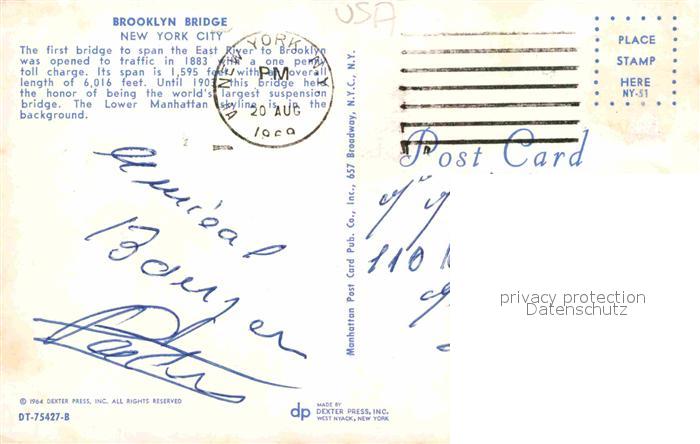 USA
BROOKLYN BRIDGE
NEW YORK CITY
The first bridge to span the East River to Brooklyn
was opened to traffic in 1883 with one penny
toll charge. Its span is 1,595 feet with overall
length of 6,016 feet. Until 1903 this bridge held
the honor of being the world's largest suspension
bridge. The Lower Manhattan skyline is in the
background.
NEW YORK, N.Y.
PM
20 AUG
1969
PLACE
STAMP
HERE
NY-51
Post Card
Amical
110
privacy protection
Datenschutz
Manhattan Post Card Pub. Co., Inc., 657 Broadway, N.Y.C., N.Y.
© 1964 DEXTER PRESS, INC. ALL RIGHTS RESERVED
DT-75427-B
dp
MADE BY
DEXTER PRESS, INC.
WEST NYACK, NEW YORK